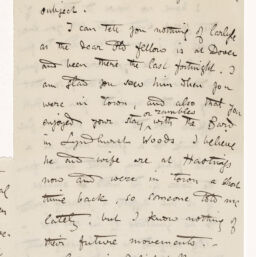 subject.
I can tell you nothing of Carlyle
as the dear old fellow is at Dover
and been there the last fortnight. I
am glad you saw him then you
were in town, and also that you
or rambles
enjoyed your stay with the Bard
in Lyndhurst Woods. I believe
he and wife are at Hastings
now and were in town a short
time back, so someone told me
lately, but I know nothing of
their future movements.